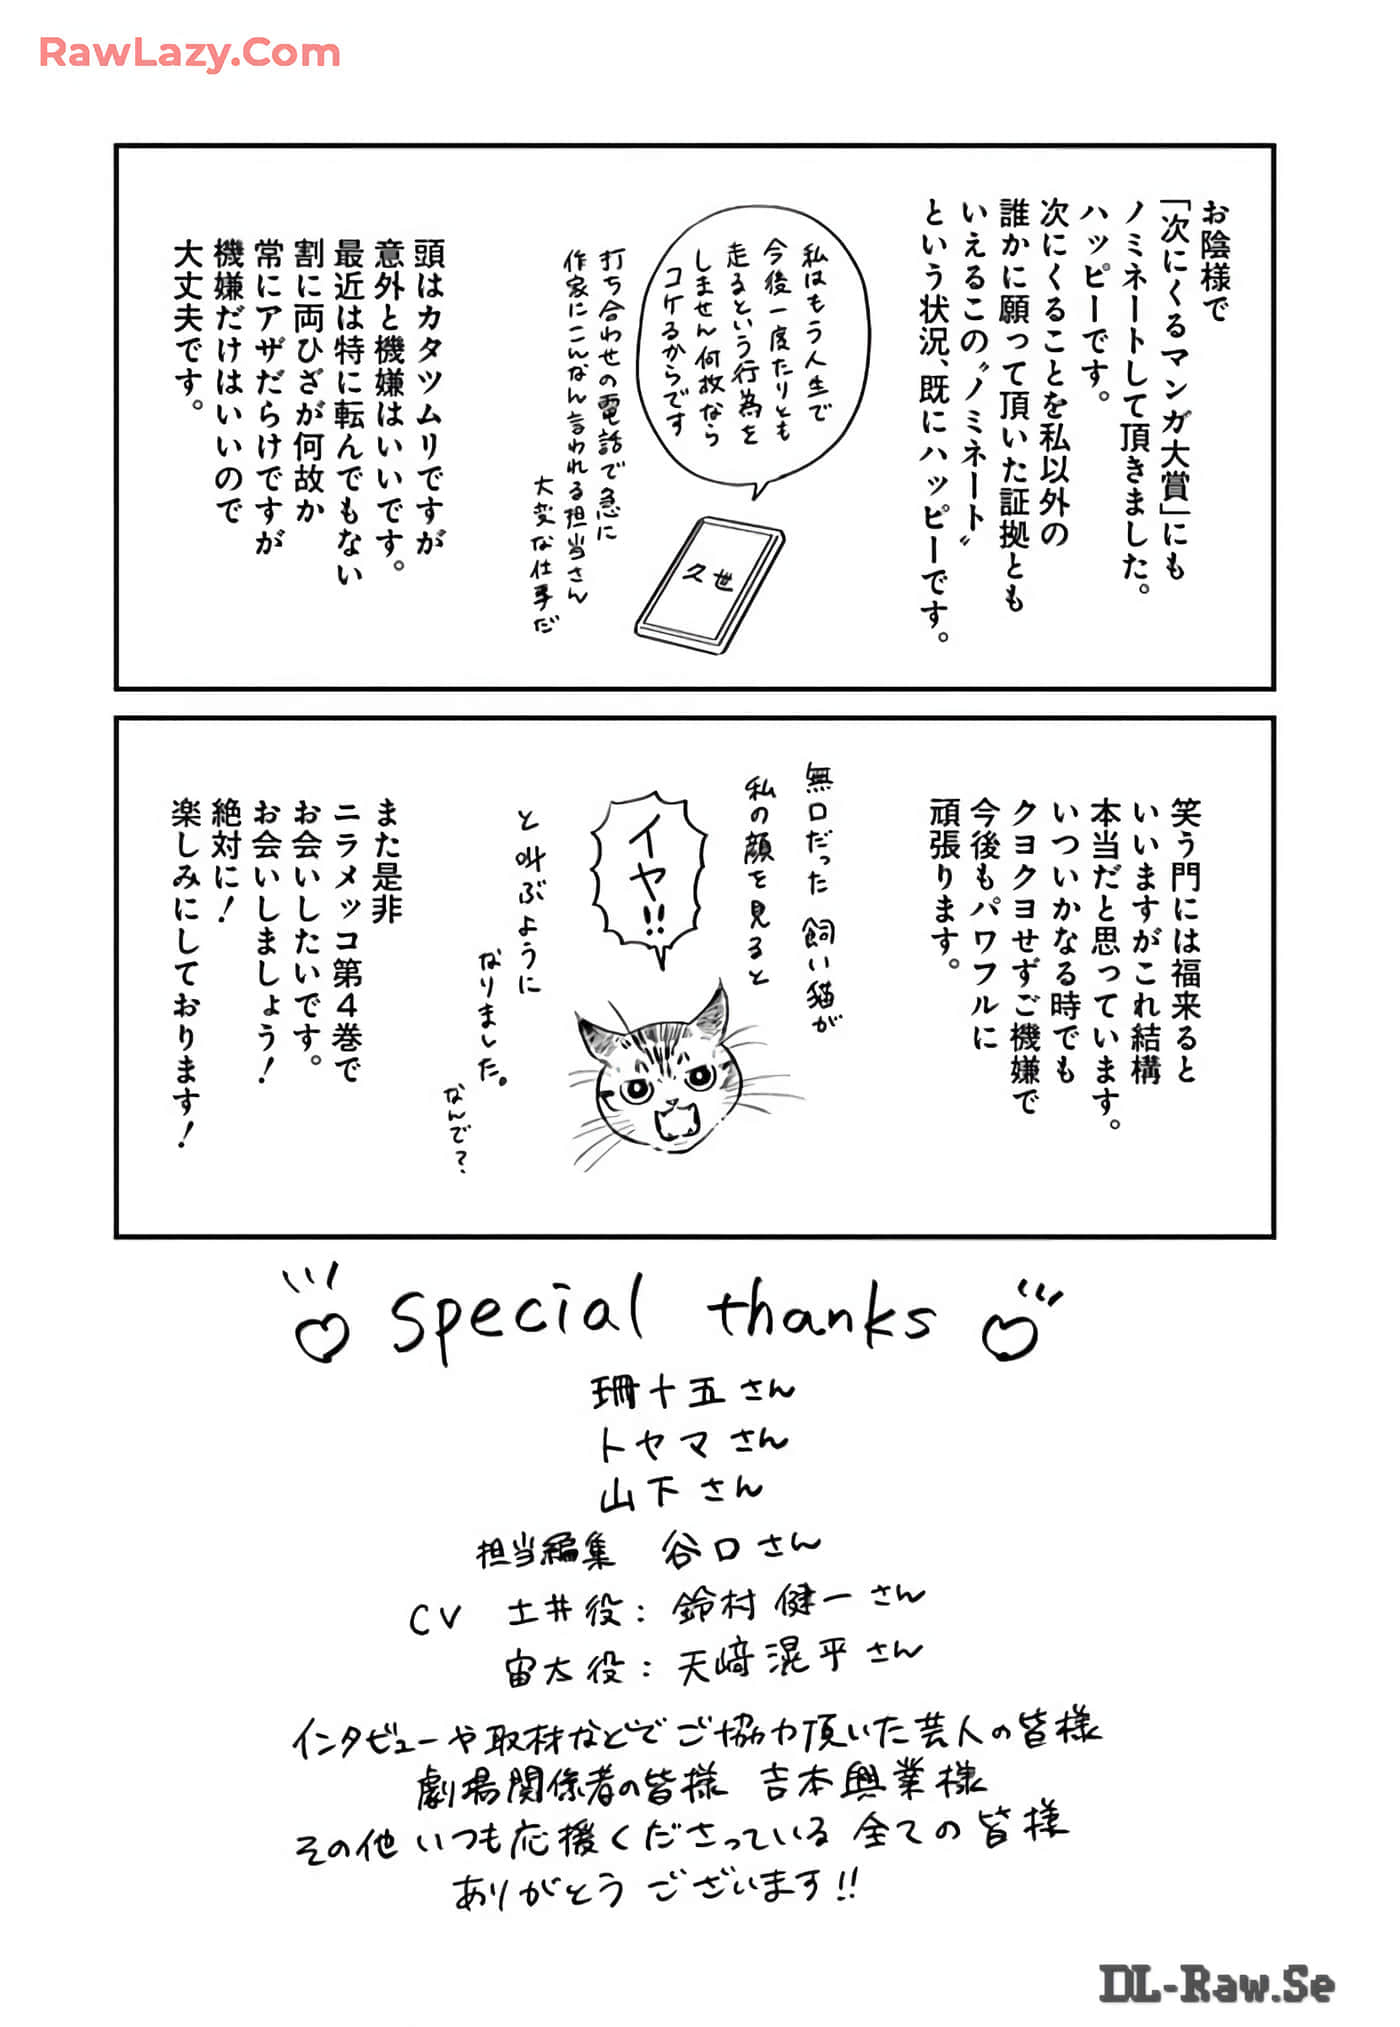 RawLazy.Com
お陰様で
「次にくるマンガ大賞」にも
ノミネートして頂きました。
ハッピーです。
次にくることを私以外の
誰かに願って頂いた証拠とも
いえるこの〝ノミネート〟
という状況、既にハッピーです。
私はもう人生で
今後一度たりとも
走るという行為を
しません何故なら
コケるからです
久世
打ち合わせの電話で急に
作家にこんなん言われる担当さん
大変な仕事だ
頭はカタツムリですが
意外と機嫌はいいです。
最近は特に転んでもない
割に両ひざが何故か
常にアザだらけですが
機嫌だけはいいので
大丈夫です。
笑う門には福来ると
いいますがこれ結構
本当だと思っています。
いついかなる時でも
クヨクヨせずご機嫌で
今後もパワフルに
頑張ります。
無口だった飼い猫が
私の顔を見ると
イヤ!!
と叫ぶように
なりました。
なんで?
また是非
ニラメッコ第4巻で
お会いしたいです。
お会いしましょう!
絶対に!
楽しみにしております!
special thanks
珊十五さん
トヤマさん
山下さん
担当編集 谷口さん
CV 土井役:鈴村健一さん
宙太役:天﨑滉平さん
インタビューや取材などでご協力頂いた芸人の皆様
劇場関係者の皆様 吉本興業様
その他いつも応援くださっている全ての皆様
ありがとうございます!!
DL-Raw.Se